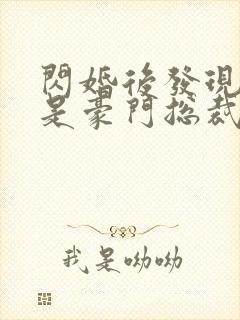 閃婚後發現
是豪門總裁
我是呦呦